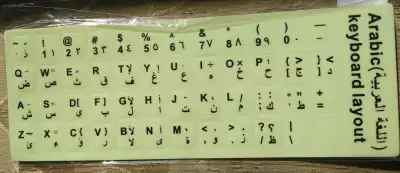 Arabic(اللغة العربية)
keyboard layout
~ ! @ # $ % ^ & * ( ) —
1 2 3 4 5٥ 6٦ 7٧ 8٨ 9٩ 0٠
Q W E R T Y U I÷ O× P { < } > <
ض ص ث ق ف غ ع ه خ ح [ج ]د
A S D[ F] G H J K L / : " +
ش س ي ب ل ا ت ن م ;ك 'ط =
Z~ X C{ V} B N M < > ?؟ |
ئ ء ؤ ر لا ى ة و ز /ظ \